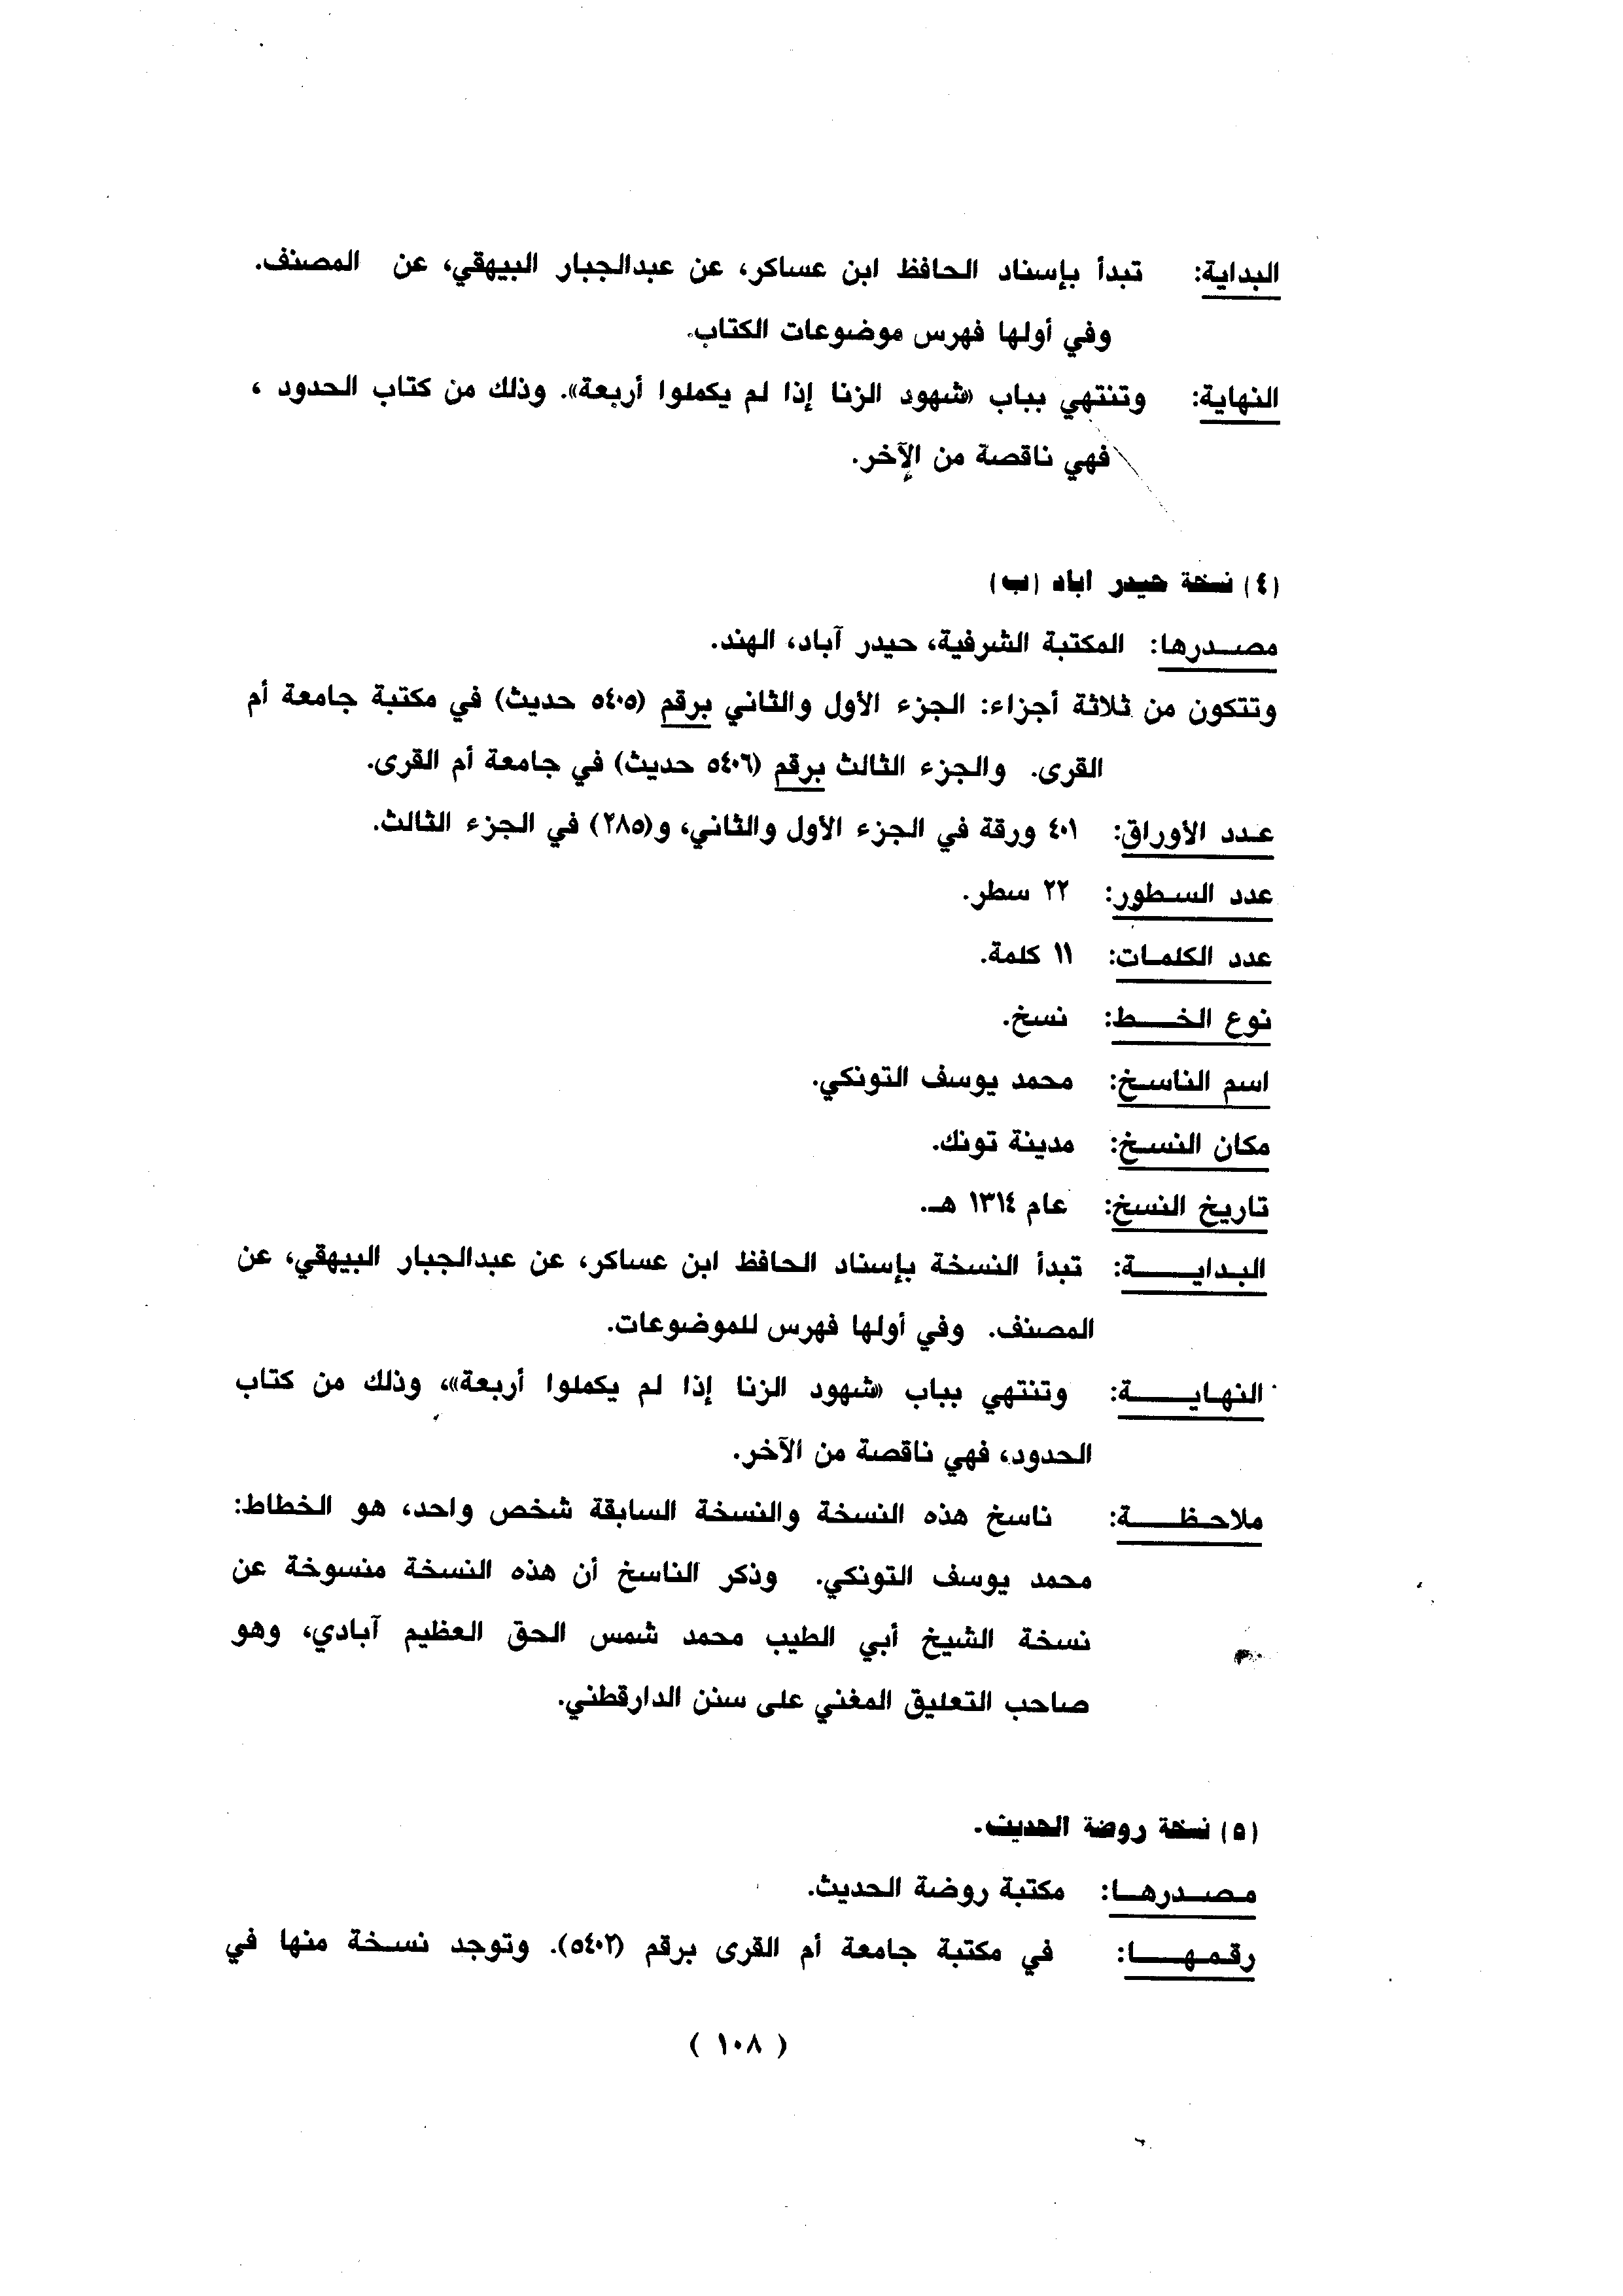 البداية: تبدأ بإسناد الحافظ ابن عساكر، عن عبدالجبار البيهقي، عن المصنف.
وفي أولها فهرس موضوعات الكتاب.
النهاية: وتنتهي بباب «شهود الزنا إذا لم يكملوا أربعة». وذلك من كتاب الحدود ،
فهي ناقصة من الآخر.
(٤) نسخة حيدر اباد (ب)
مصــدرها: المكتبة الشرفية، حيدر آباد، الهند.
وتتكون من ثلاثة أجزاء: الجزء الأول والثاني برقم (٥٤٠٥ حديث) في مكتبة جامعة أم
القرى. والجزء الثالث برقم (٥٤٠٦ حديث) في جامعة أم القرى.
عـدد الأوراق: ٤٠١ ورقة في الجزء الأول والثاني، و(٢٨٥) في الجزء الثالث.
عدد السـطور: ٢٢ سطر.
عدد الكلمـات: ١١ كلمة.
نوع الخـــط: نسخ.
اسم الناسـخ: محمد يوسف التونكي.
مكان النسـخ: مدينة تونك.
تاريخ النسخ: عام ١٣١٤ هـ.
البـدايـــــة: تبدأ النسخة بإسناد الحافظ ابن عساكر، عن عبدالجبار البيهقي، عن
المصنف. وفي أولها فهرس للموضوعات.
النهـايـــــة: وتنتهي بباب «شهود الزنا إذا لم يكملوا أربعة»، وذلك من كتاب
الحدود، فهي ناقصة من الآخر.
ملاحـظـــــة: ناسخ هذه النسخة والنسخة السابقة شخص واحد، هو الخطاط:
محمد يوسف التونكي. وذكر الناسخ أن هذه النسخة منسوخة عن
نسخة الشيخ أبي الطيب محمد شمس الحق العظيم آبادي، وهو
صاحب التعليق المغني على سنن الدارقطني.
(٥) نسخة روضة الحديث.
مـصــدرهــا: مكتبة روضة الحديث.
رقـمـهـــــا: في مكتبة جامعة أم القرى برقم (٥٤٠٢). وتوجد نسـخة منها في
( ١٠٨ )